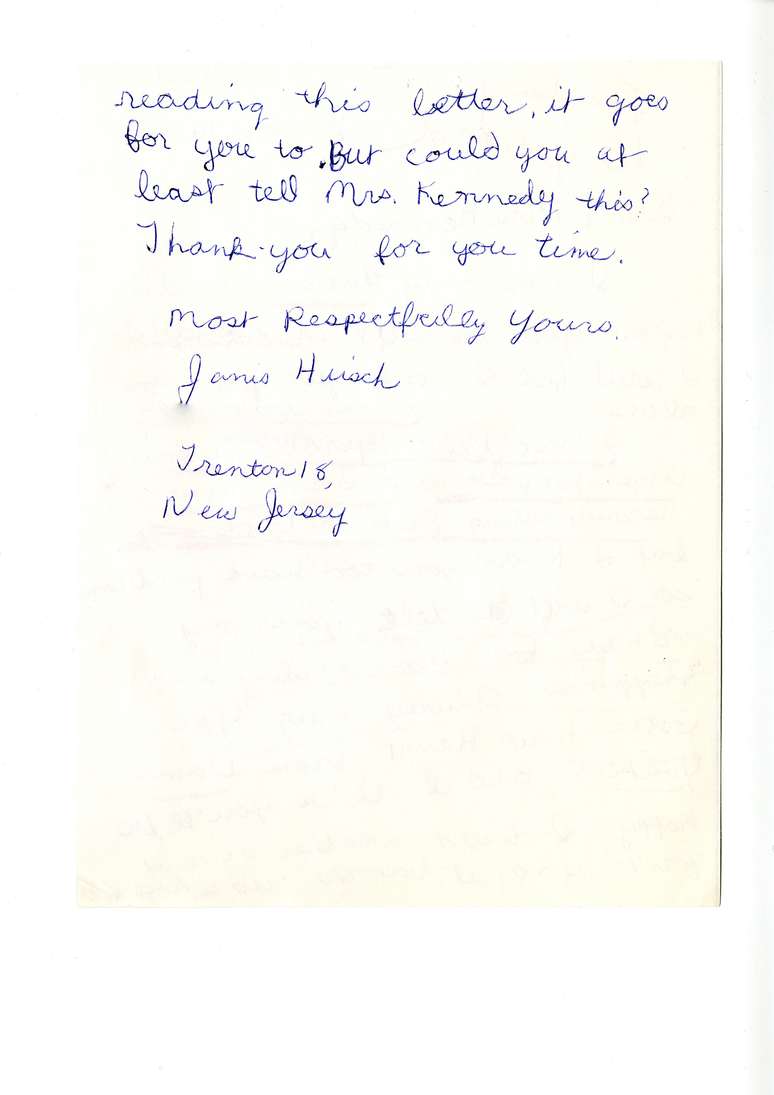 reading this letter, it goes
for you to. But could you at
least tell Mrs. Kennedy this?
Thank-you for you time.
Most Respectfully Yours.
Janis Hirsch
Trenton 18,
New Jersey